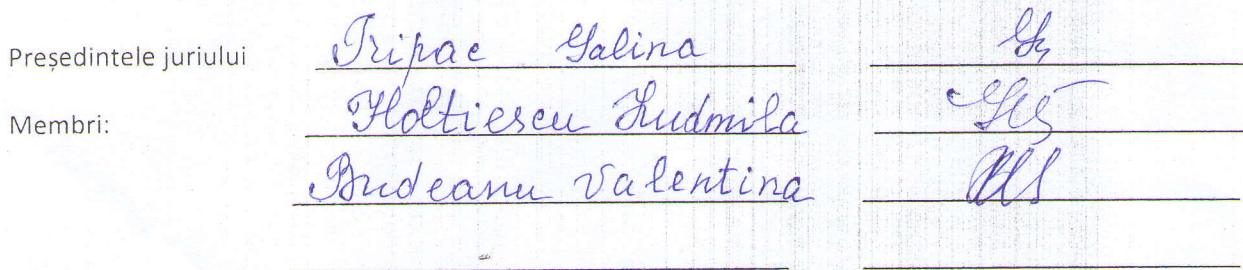 Președintele juriului Tripac Galina
Membri: Holtiescu Ludmila
Budeanu Valentina